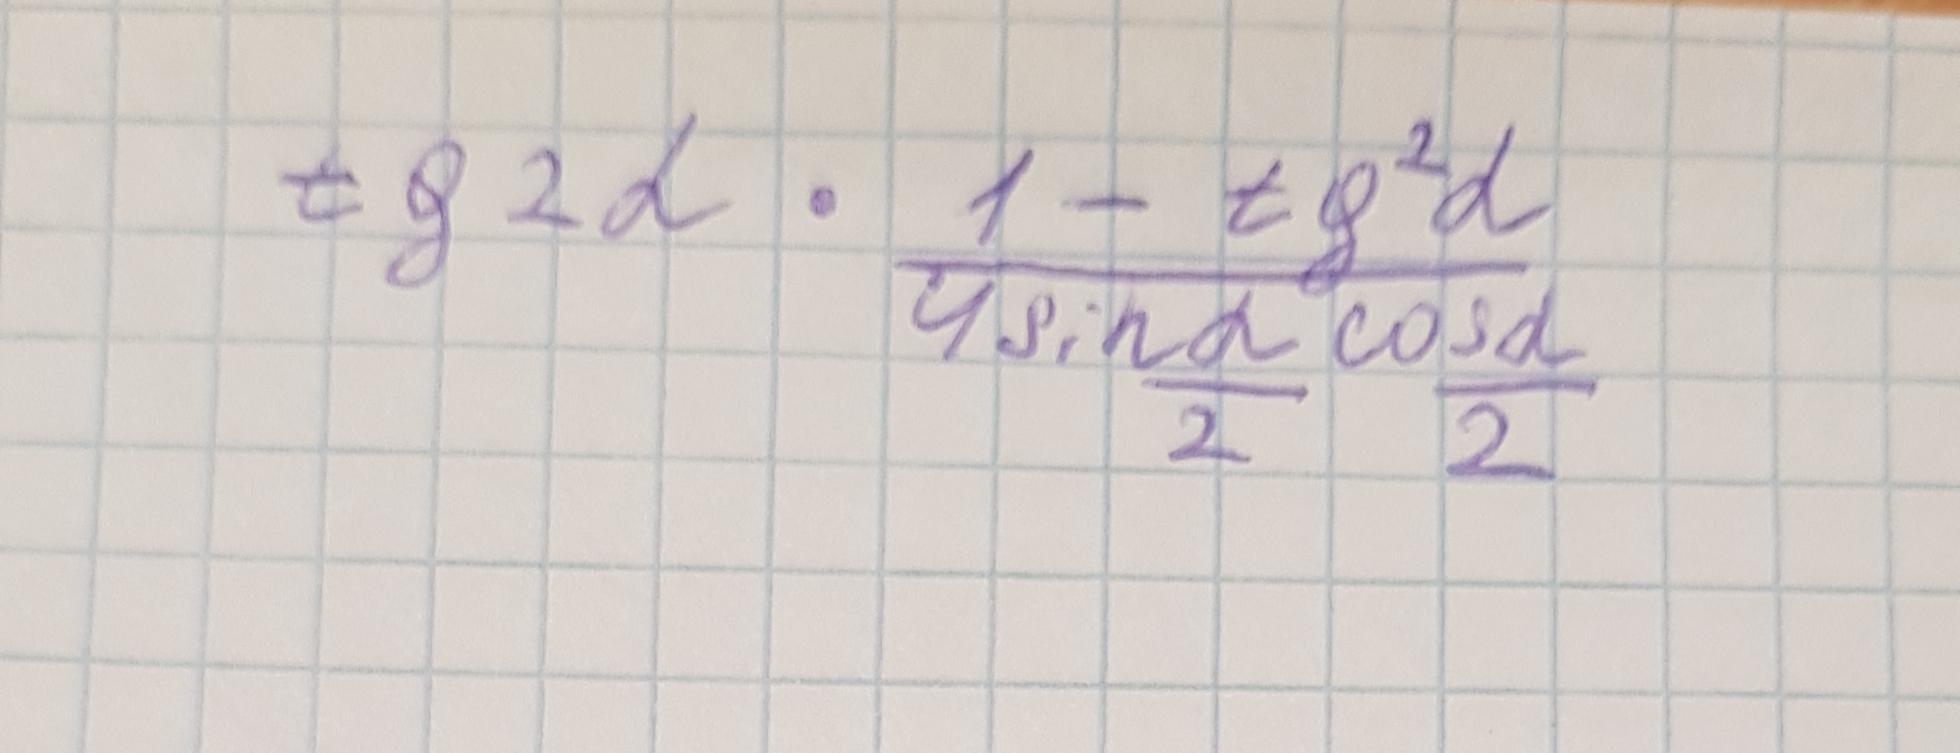 tg 2α · (1 − tg²α) / (4 sin α/2 cos α/2)